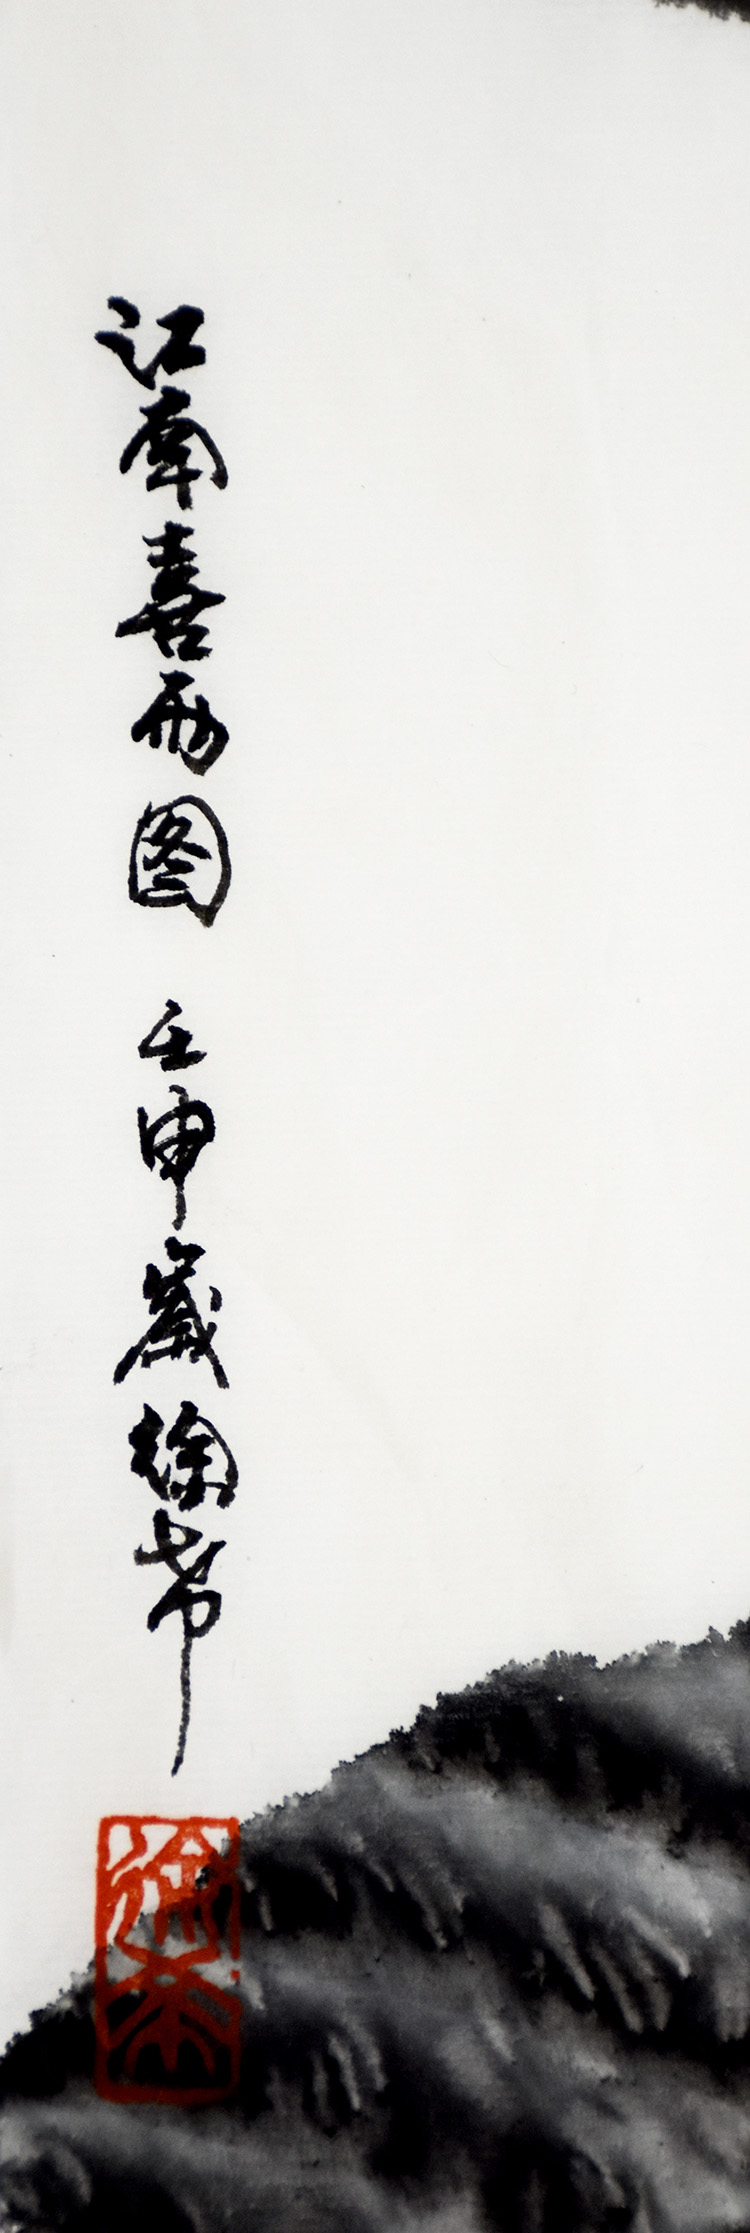 江南喜雨图 壬申歲徐希
徐希